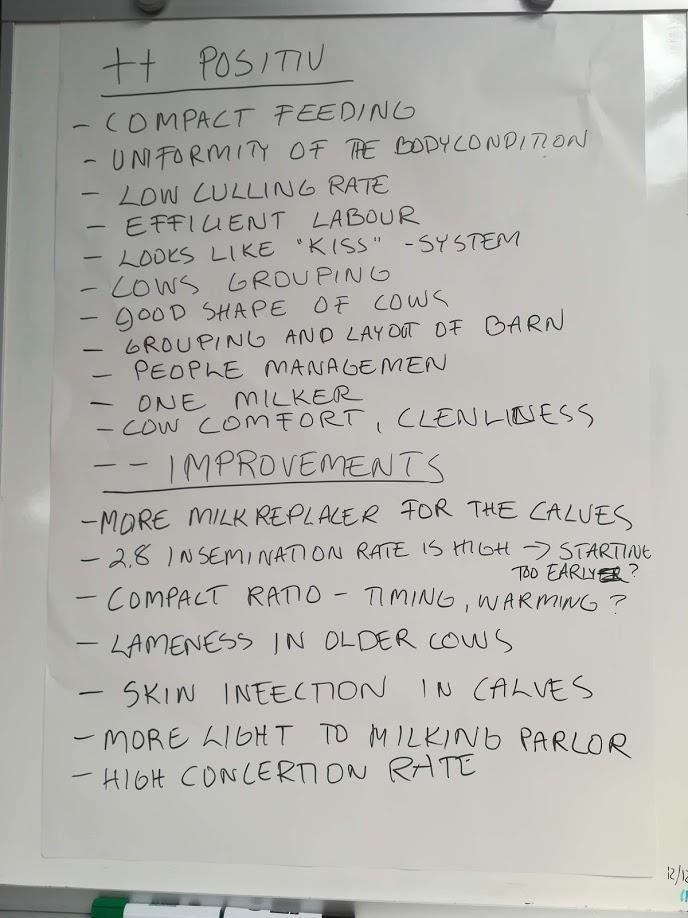 ++ POSITIV
- COMPACT FEEDING
- UNIFORMITY OF THE BODYCONDITION
- LOW CULLING RATE
- EFFICIENT LABOUR
- LOOKS LIKE "KISS" -SYSTEM
- COWS GROUPING
- GOOD SHAPE OF COWS
- GROUPING AND LAYOUT OF BARN
- PEOPLE MANAGEMEN
- ONE MILKER
- COW COMFORT, CLENLINESS
-- IMPROVEMENTS
- MORE MILKREPLACER FOR THE CALVES
- 2.8 INSEMINATION RATE IS HIGH → STARTING
TOO EARLY ?
- COMPACT RATIO - TIMING, WARMING ?
- LAMENESS IN OLDER COWS
- SKIN INFECTION IN CALVES
- MORE LIGHT TO MILKING PARLOR
- HIGH CONCERTION RATE